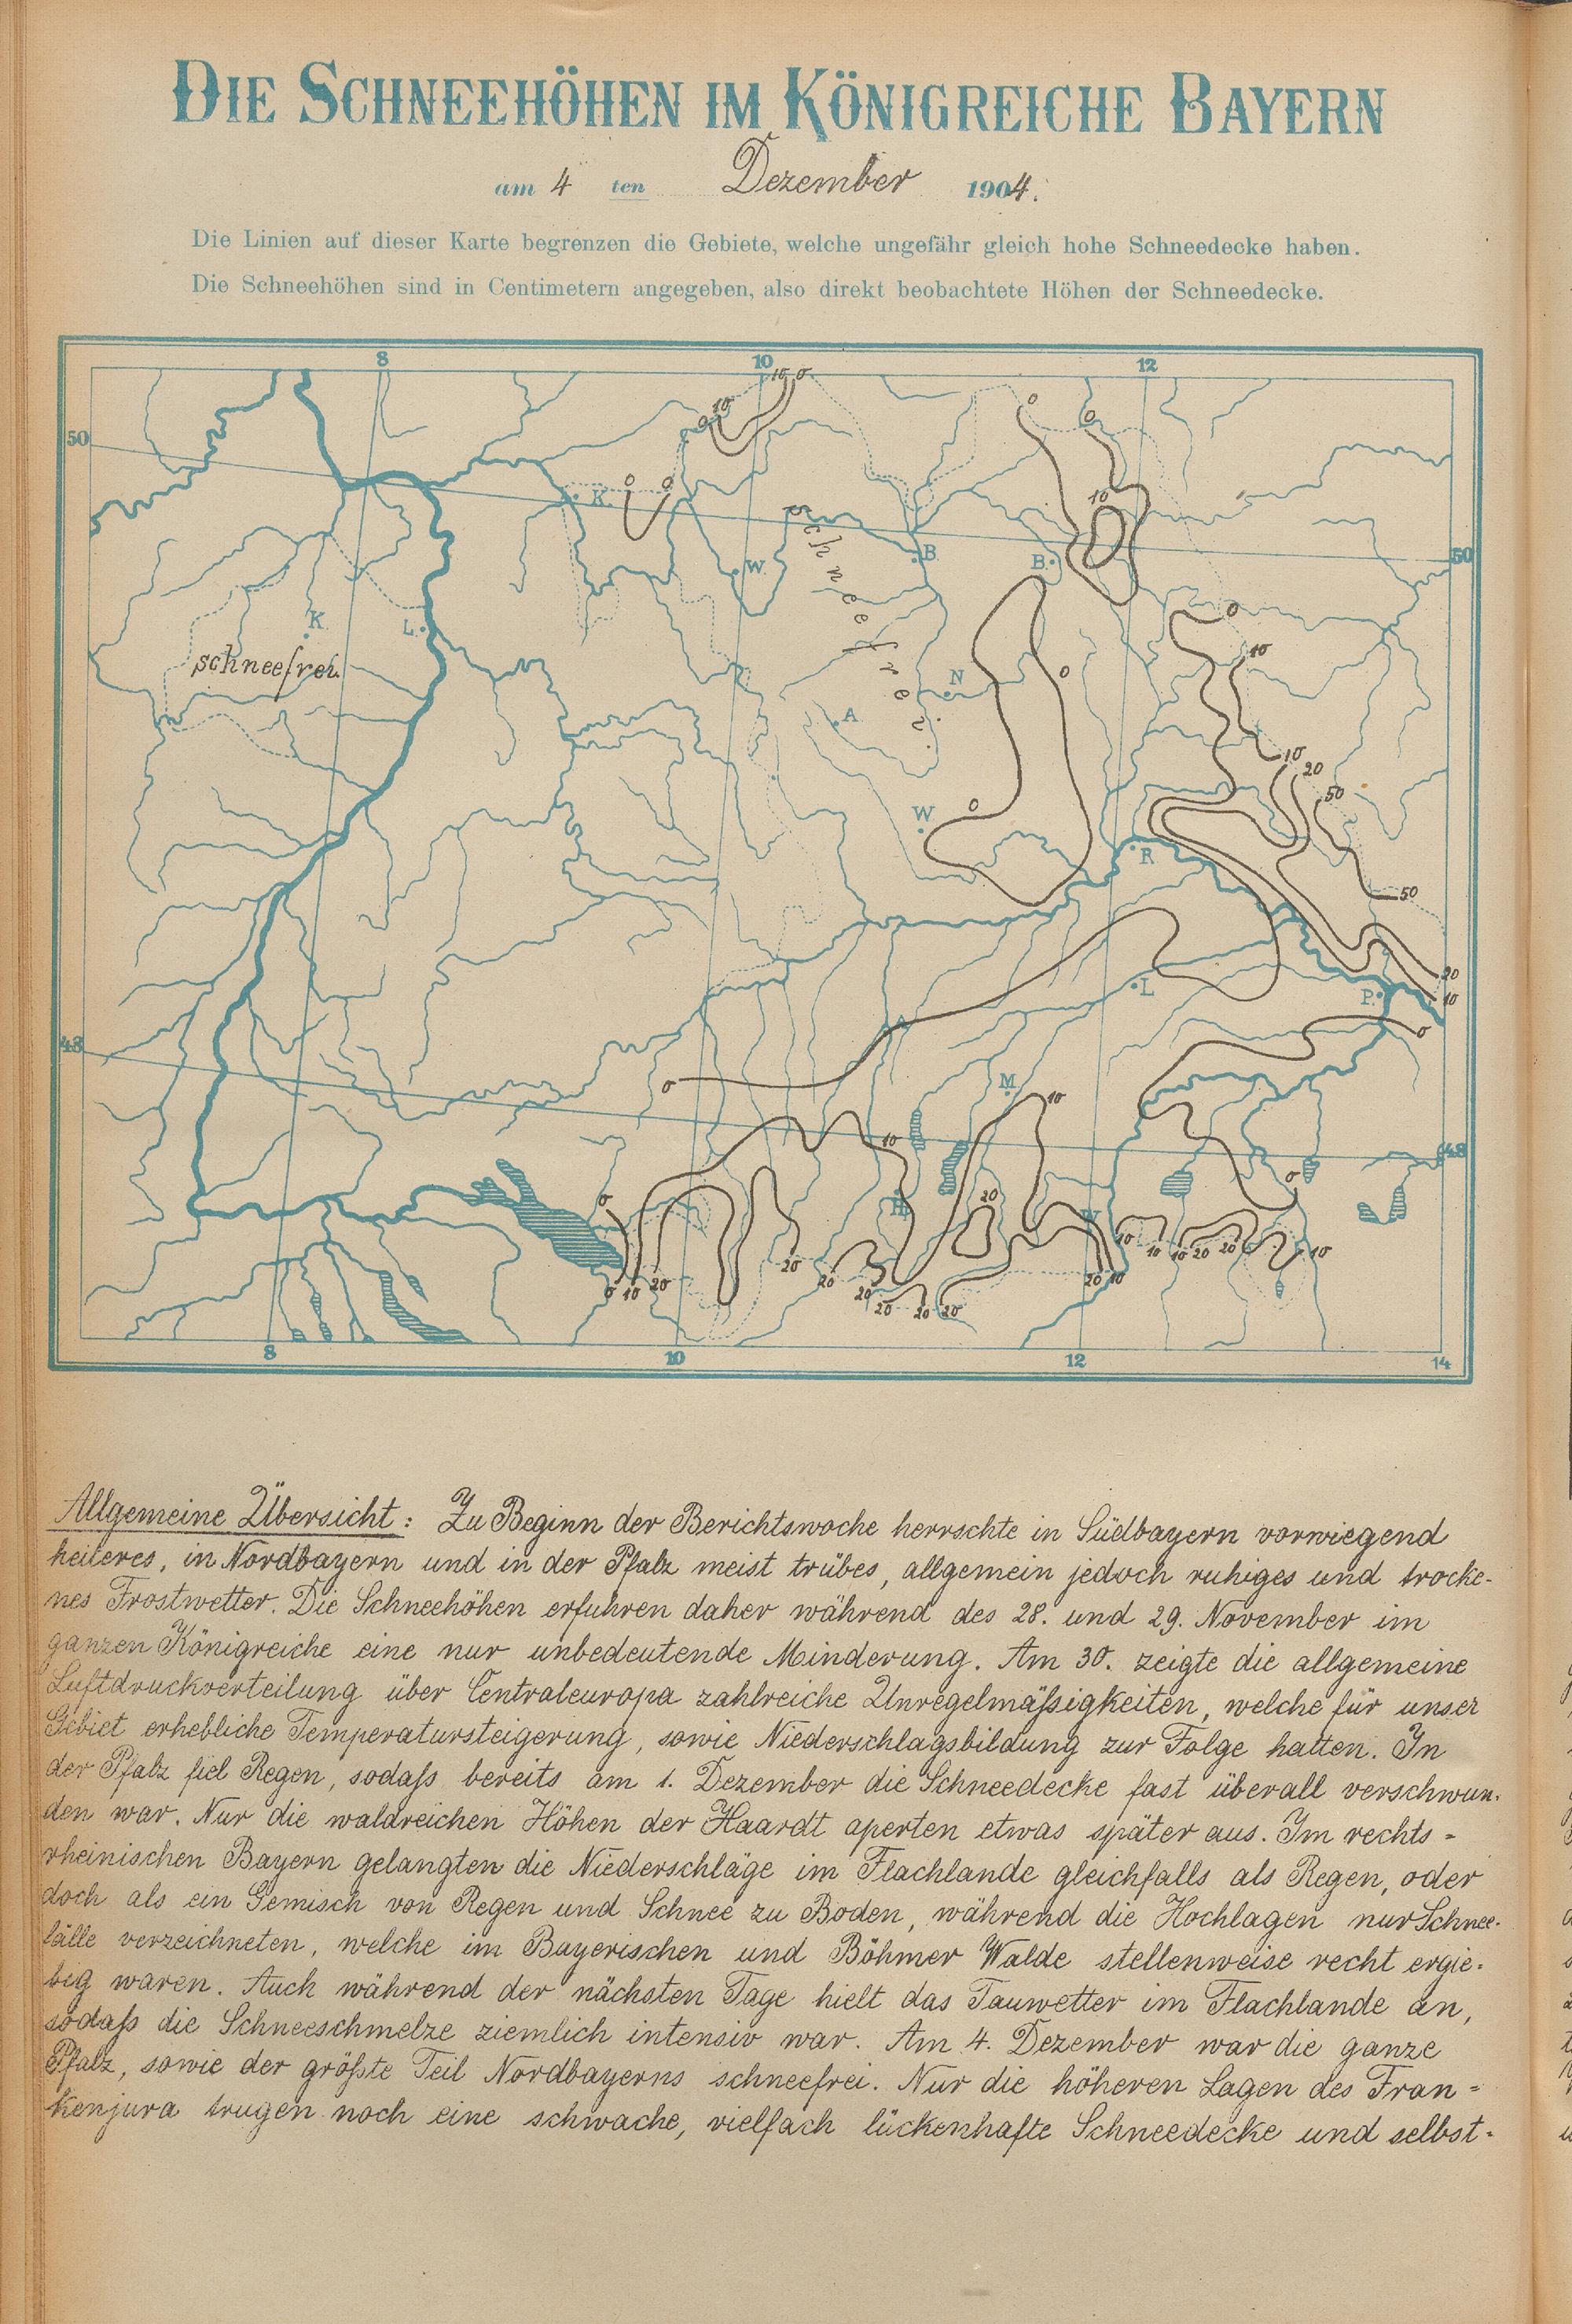 DIE SCHNEEHÖHEN IM KÖNIGREICHE BAYERN
am 4 ten Dezember 1904.
Die Linien auf dieser Karte begrenzen die Gebiete, welche ungefähr gleich hohe Schneedecke haben.
Die Schneehöhen sind in Centimetern angegeben, also direkt beobachtete Höhen der Schneedecke.
8 10 12
10 0
10
0
0 0
50
0 0
K.
10
schneefrei.
W.
B
B.
50
K.
L.
schneefrei.
0
10
0
N
A
10
20
50
W
0
R
50
L
P.
20
10
0
48
0
M
10
10
48
0
0
20
R
W
10 10 10 20 20 10
20
20
20
20 20 20
20 10
0 10 20
8 10 12 14
Allgemeine Übersicht: Zu Beginn der Berichtswoche herrschte in Südbayern vorwiegend
heiteres, in Nordbayern und in der Pfalz meist trübes, allgemein jedoch ruhiges und trocke-
nes Frostwetter. Die Schneehöhen erfuhren daher während des 28. und 29. November im
ganzen Königreiche eine nur unbedeutende Minderung. Am 30. zeigte die allgemeine
Luftdruckverteilung über Centraleuropa zahlreiche Unregelmäßigkeiten, welche für unser
Gebiet erhebliche Temperatursteigerung, sowie Niederschlagsbildung zur Folge hatten. In
der Pfalz fiel Regen, sodaß bereits am 1. Dezember die Schneedecke fast überall verschwun-
den war. Nur die waldreichen Höhen der Haardt aperten etwas später aus. Im rechts-
rheinischen Bayern gelangten die Niederschläge im Flachlande gleichfalls als Regen, oder
doch als ein Gemisch von Regen und Schnee zu Boden, während die Hochlagen nur Schnee-
fälle verzeichneten, welche im Bayerischen und Böhmer Walde stellenweise recht ergie-
big waren. Auch während der nächsten Tage hielt das Tauwetter im Flachlande an,
sodaß die Schneeschmelze ziemlich intensiv war. Am 4. Dezember war die ganze
Pfalz, sowie der größte Teil Nordbayerns schneefrei. Nur die höheren Lagen des Fran-
kenjura trugen noch eine schwache, vielfach lückenhafte Schneedecke und selbst-